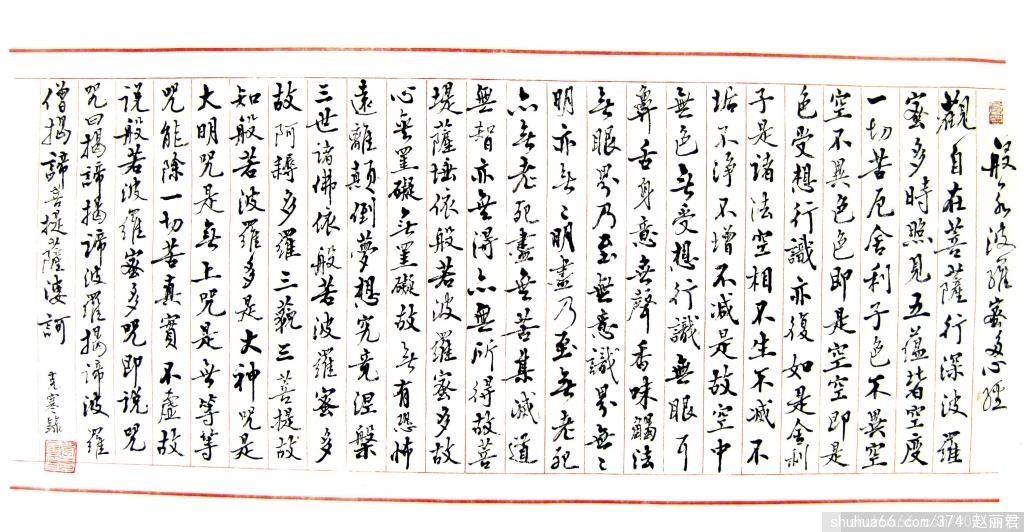 般若波羅蜜多心經
觀自在菩薩行深波羅
蜜多時照見五蘊皆空度
一切苦厄舍利子色不異空
空不異色色即是空空即是
色受想行識亦復如是舍利
子是諸法空相不生不滅不
垢不淨不增不減是故空中
無色无受想行識無眼耳
鼻舌身意無聲香味觸法
无眼界乃至無意識界無〻
明亦无〻明盡乃至无老死
亦无老死盡無苦集滅道
無智亦無得亦無所得故菩
提薩埵依般若波羅蜜多故
心無罣礙无罣礙故无有恐怖
遠離顛倒夢想究竟涅槃
三世諸佛依般若波羅蜜多
故阿耨多羅三藐三菩提故
知般若波羅多是大神咒是
大明咒是无上咒是无等等
咒能除一切苦真實不虛故
說般若波羅蜜多咒即說咒
咒曰揭諦揭諦波羅揭諦波羅
僧揭諦菩提薩婆訶
寒錄
shuhua66.com/3740赵丽君